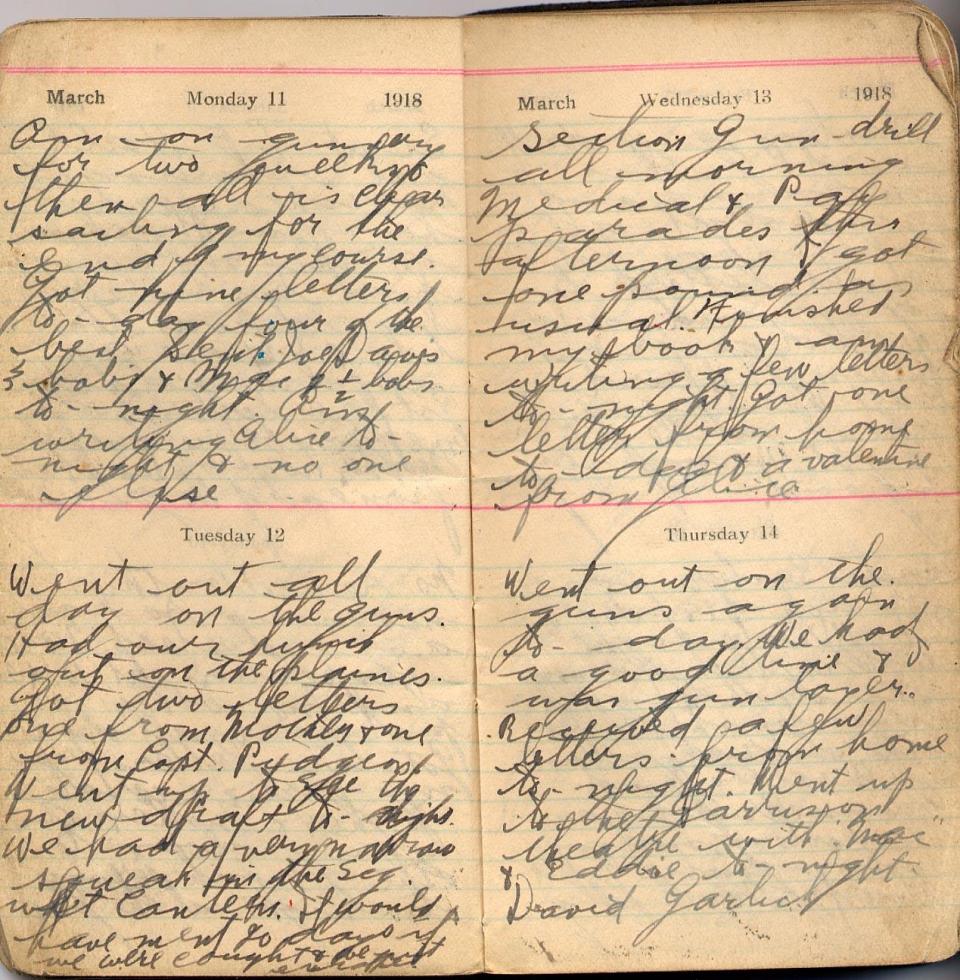 March Monday 11 1918
Am on gunnery
for two
then all is clear
sailing for the
end of my course.
Got nine letters
to-day four of the
best. Sent Joe Davis
3 bobs & Mac 2½ bobs
to-night. Am
writing Alice to-
night & no one
else
Tuesday 12
Went out all
day on the guns.
Had our
out on the plaines.
Got two letters
one from Mother & one
from Capt. Pudgeon
Went up to see the
new draft to-night.
We had a very narrow
squeak in the Seg.
wet Canteen. It would
have ment 80 days if
we were caught &
March Wednesday 13 1918
Section Gun-drill
all morning
Medical & Pay
parades this
afternoon I got
one pound as
usual. Finished
my book & am
writing a few letters
to-night. Got one
letter from home
to-day & a valentine
from Alice
Thursday 14
Went out on the
guns again
to-day. We had
a good time &
was gun layer.
Received a few
letters from home
to-night. Went up
to the Garrison
theatre with "Mac"
& Eddie to-night.
David Garlick